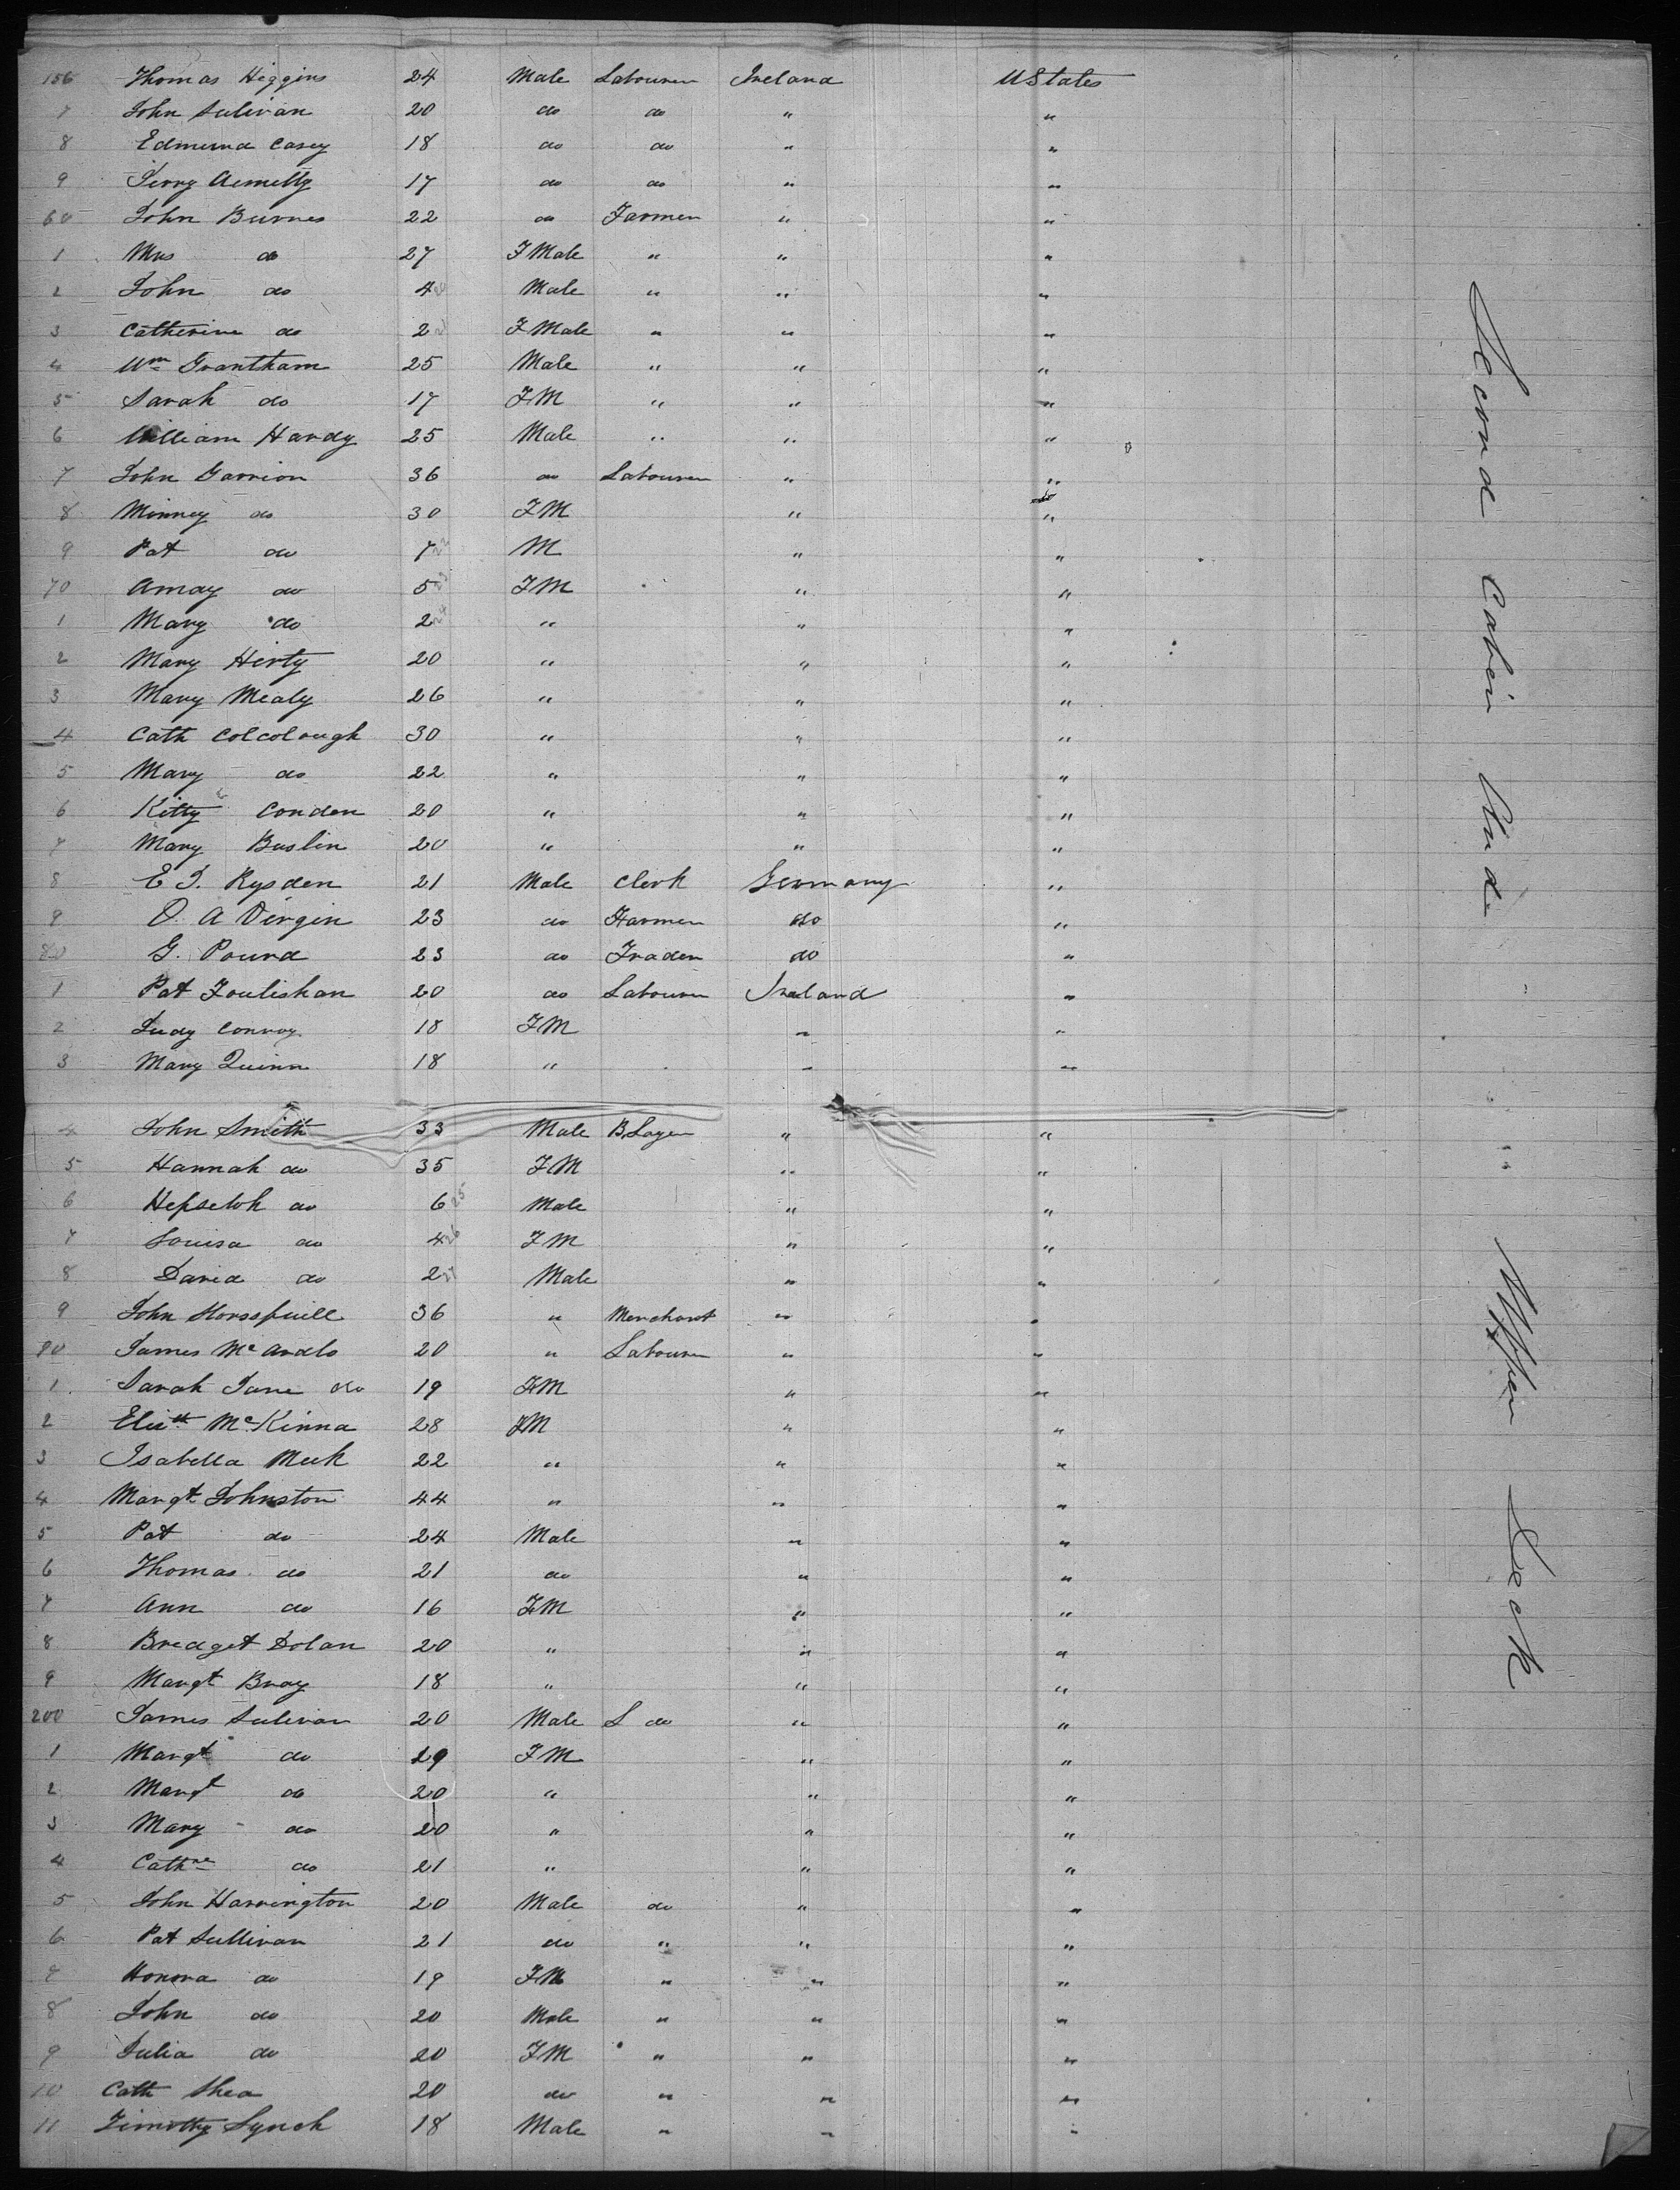 156 Thomas Higgins 24 Male Labourer Ireland UStates
7 John Sulivan 20 do do " "
8 Edmund Casey 18 do do " "
9 17 do do " "
60 John Burnes 22 do Farmer " "
1 Mrs do 27 FMale " " "
2 John do 4 Male " " "
3 Catherine do 2 FMale " " "
4 Wm Grantham 25 Male " " "
5 Sarah do 17 FM " " "
6 William Hardy 25 Male " " "
7 John Garrion 36 do Labourer " "
8 Minney do 30 FM " "
9 Pat do 7 M " "
70 Amay do 5 FM " "
1 Mary do 2 " " "
2 Mary Hirty 20 " " "
3 Mary Mealy 26 " " "
4 Cath Colcolough 30 " " "
5 Mary do 22 " " "
6 Kitty Condon 20 " " "
7 Mary Buslin 20 " " "
8 E J. Rysden 21 Male Clerk Germany "
9 O. A Virgin 23 do Farmer do "
80 G. Pound 23 do Trader do "
1 Pat Foulishan 20 do Labourer Ireland "
2 Judy Conroy 18 FM " "
3 Mary Quinn 18 " " "
4 John Smith 33 Male BLayer " "
5 Hannah do 35 FM " "
6 do 6 Male " "
7 Louisa do 4 FM " "
8 David do 2 Male " "
9 John 36 " Merchant " "
90 James McArdlo 20 " Labourer " "
1 Sarah Jane do 19 FM " "
2 Elizth McKinna 28 FM " "
3 Isabella Meek 22 " " "
4 Margt Johnston 44 " " "
5 Pat do 24 Male " "
6 Thomas do 21 do " "
7 Ann do 16 FM " "
8 Bredget Dolan 20 " " "
9 Margt Bray 18 " " "
200 James Sulivan 20 Male L do " "
1 Margt do 29 FM " "
2 Margt do 20 " " "
3 Mary do 20 " " "
4 Cathne do 21 " " "
5 John Harrington 20 Male do " "
6 Pat Sullivan 21 do " " "
7 Honora do 19 FM " " "
8 John do 20 Male " " "
9 Julia do 20 FM " " "
10 Cath Shea 20 do " " "
11 Timothy Lynch 18 Male " " "
Second Cabin And Upper Deck